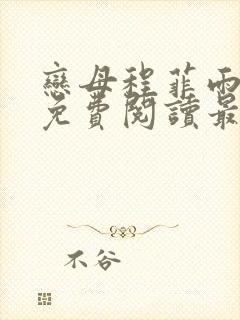 戀母程菲雨
免費閱讀最
不谷